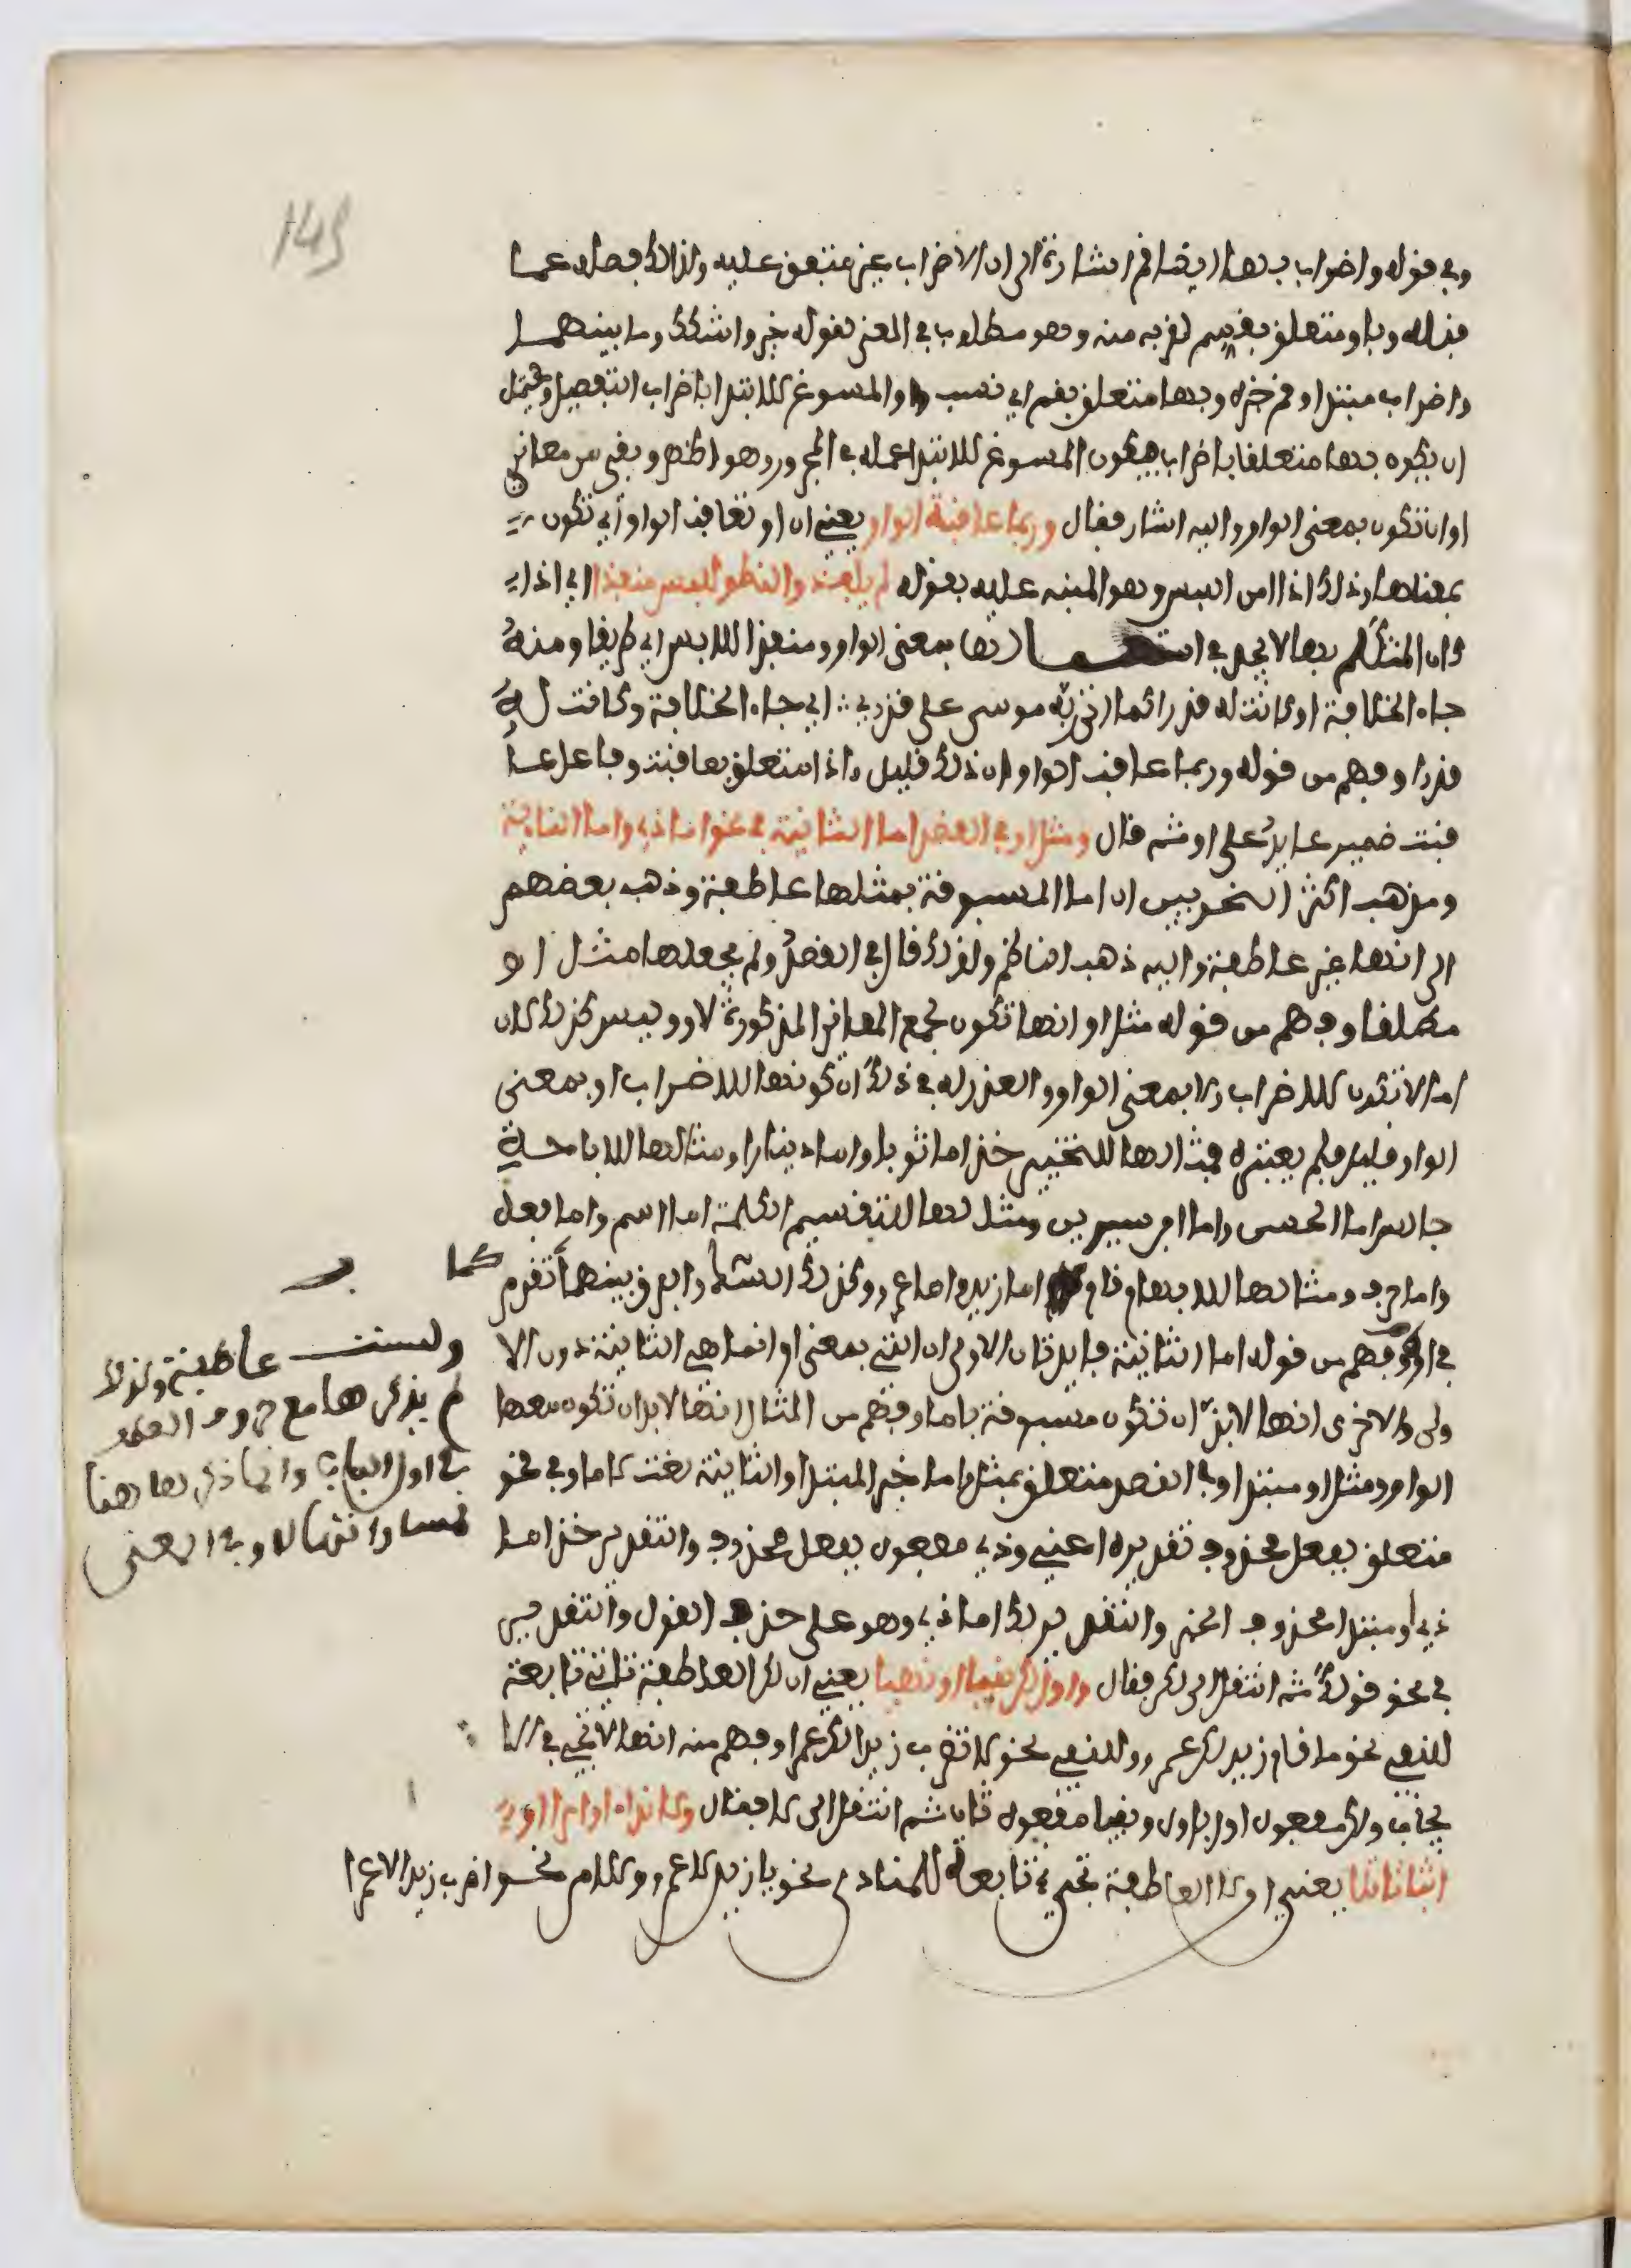 149
وفي قوله واضراب بها ايضا نمي اشارة الى ان الاضراب غير متفق عليه ولذلك فصله عما
قبله وباو متعلق بقسم لقربه منه وهو مطلوب في المعنى لقوله خير واشكك وما بينهما
واضراب مبتدا ونمي خبره وبها متعلق بنمي اي نسب والمسوغ للابتدا باضراب التفصيل ويحتمل
ان يكون بها متعلقا باضراب فيكون المسوغ للابتدا عمله في المجرور وهو اظهر وبقي من معاني
او ان تكون بمعنى الواو واليه اشار فقال وربما عاقبة الواو يعني ان او تعاقب الواو اي تكون
بمعناها وذلك اذا امن اللبس وهو المنبه عليه بقوله لم يلف ذو النطق للبس منفذا اي اذا
كان المتكلم بها لا يجد في بمعنى الواو ومنفذا للابس اي طريقا ومنه
جاء الخلافة او كانت له قدرا كما اتى ربه موسى على قدر ∴ اي جاء الخلافة وكانت له
قدرا وفهم من قوله وربما عاقبت الواو ان ذلك قليل واذا متعلق بعاقبت وفاعل عا
قبت ضمير عايد على او ثم قال ومثل او في القصد اما الثانية في نحو اما ذي واما النايية
ومذهب اكثر النحويين ان اما المسبوقة بمثلها عاطفة وذهب بعضهم
الى انها غير عاطفة واليه ذهب الناظم ولذلك قال في القصد ولم يجعلها مثل او
مطلقا وفهم من قوله مثل او انها تكون لجميع المعاني المذكورة لاو وليس كذلك لان
اما لا تكون للاضراب ولا بمعنى الواو والعذر له في ذلك ان كونها للاضراب او بمعنى
الواو قليل فلم يعتبره فمثالها للتخيير خذ اما ثوبا واما دينارا ومثالها للاباحة
جالس اما الحسن واما ابن سيرين ومثالها للتقسيم الكلمة اما اسم واما فعل
واما حرف ومثالها للابهام قام اما زيد واما عمرو وكذلك الشك والفرق بينهما تقدم كما
في او وفهم من قوله اما الثانية فايدتان الاولى ان التي بمعنى او انما هي الثانية دون الا
ولى والاخرى انها لا بد ان تكون مسبوقة باما وفهم من المثال انها لا بد ان تكون معها
الواو ومثل او مبتدا وفي القصد متعلق بمثل واما خبر المبتدا والثانية نعت لاما وفي نحو
متعلق بفعل محذوف تقديره اعني وذي مفعول بفعل محذوف والتقدير خذ اما
ذي او مبتدا محذوف الخبر والتقدير لك اما ذي وهو على حذف القول والتقدير
في نحو قولك ثم انتقل الى لكن فقال واول لكن نفيا او نهيا يعني ان لكن العاطفة تاتي تابعة
للنفي نحو ما قام زيد لكن عمرو وللنهي نحو لا تضرب زيدا لكن عمرا وفهم منه انها لا تجي في الا
يجاب ولكن مفعول اول باول ونفيا مفعول ثان ثم انتقل الى لا فقال ولا نداء او امرا او
اثباتا تلا يعني ان لا العاطفة تجيء تابعة للمنادى نحو يا زيد لا عمرو وللامر نحو اضرب زيدا لا عمرا
وليست عاطفة ولذلك
لم يذكرها مع حروف العطف
في اول الباب وانما ذكرها هنا
لمساواتها لاو في المعنى